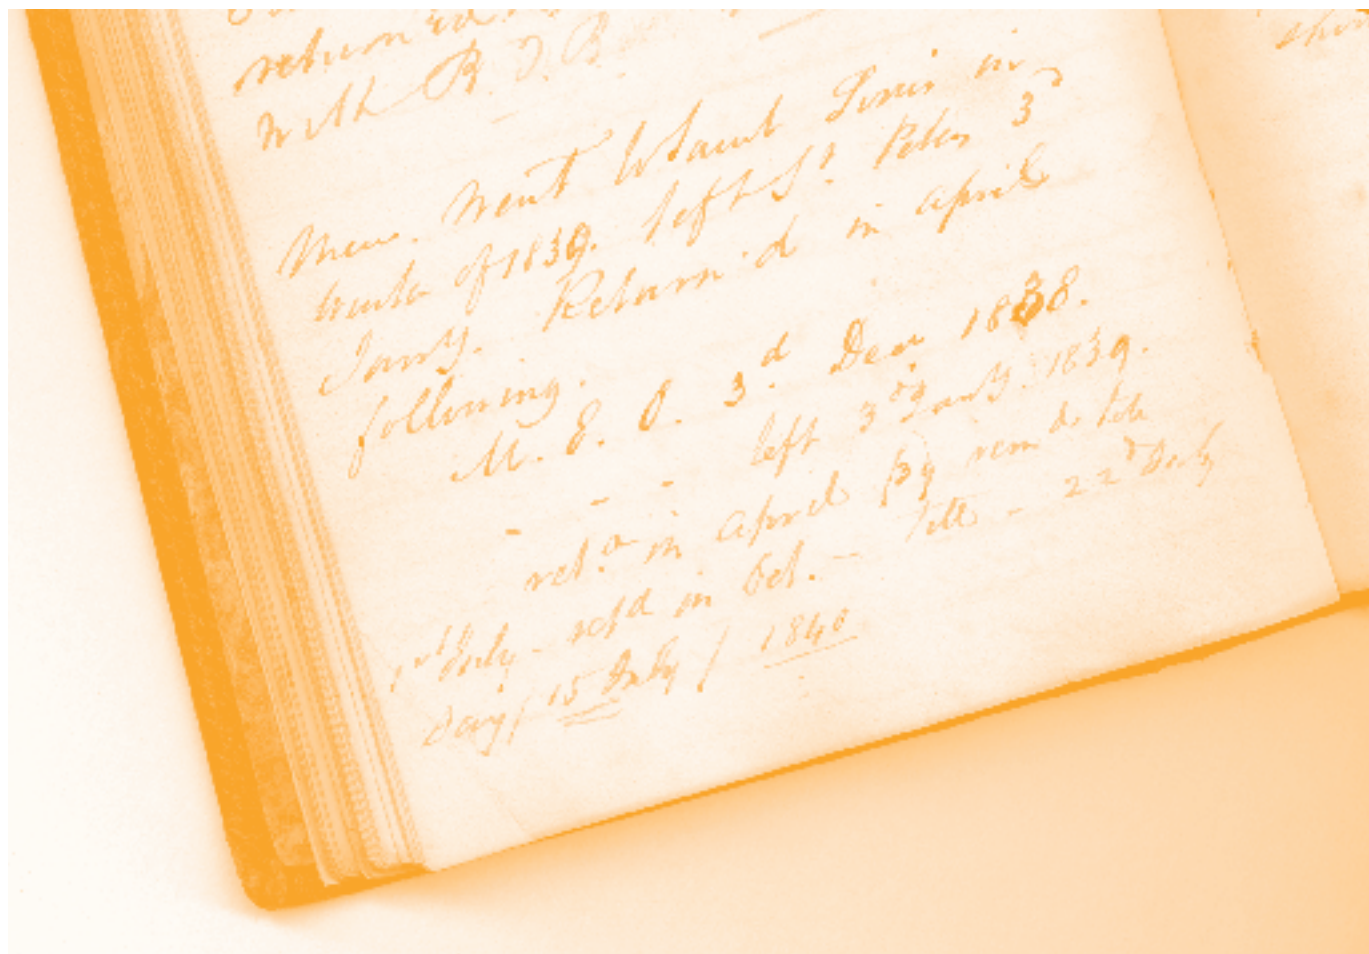 returned
with B. J. B.
Mem. Went to Saint Louis in
winter of 1839. left St. Peters 3
Jany. Return'd in april
following.
M. E. O. 3d. Decr 1838.
- - - left 3d Jany. 1839.
retd. in april /39 rem
1st July - retd in Oct. - till - 22d July
Say / 15 July / 1840